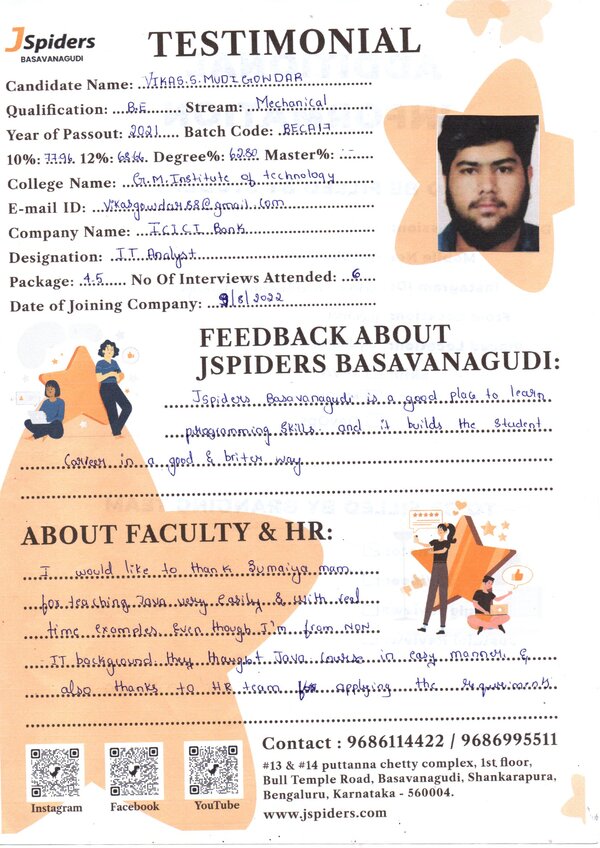 JSpiders
BASAVANAGUDI
TESTIMONIAL
Candidate Name: VIKAS.S.MUDIGOWDAR
Qualification: B.E Stream: Mechanical
Year of Passout: 2021 Batch Code: BECA17
10%: 77.96 12%: 68.66 Degree%: 62.80 Master%: --
College Name: G.M.Institute of technology
E-mail ID: vikasgowdar58@gmail.com
Company Name: ICICI Bank
Designation: IT Analyst
Package: 4.5 No Of Interviews Attended: 6
Date of Joining Company: 9/8/2022
FEEDBACK ABOUT
JSPIDERS BASAVANAGUDI:
JSpiders Basavanagudi is a good place to learn
programming skills. and it builds the student
Career in a good & briter way
ABOUT FACULTY & HR:
I would like to thank Sumaiya mam
for teaching Java very easily & with real
time examples Even though I'm from NON
IT background they thought Java course in easy manner &
also thanks to HR team for applying the requriments
Contact : 9686114422 / 9686995511
#13 & #14 puttanna chetty complex, 1st floor,
Bull Temple Road, Basavanagudi, Shankarapura,
Bengaluru, Karnataka - 560004.
www.jspiders.com
Instagram Facebook YouTube